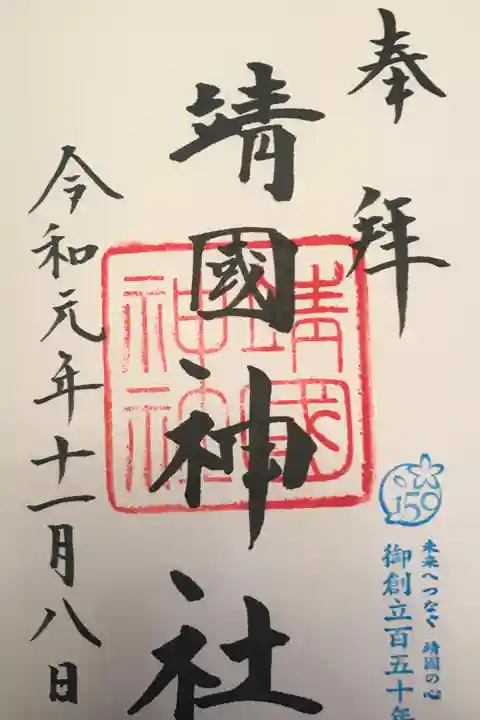 奉拜
靖國神社
靖國神社
令和元年十一月八日
150
未来へつなぐ 靖國の心
御創立百五十年